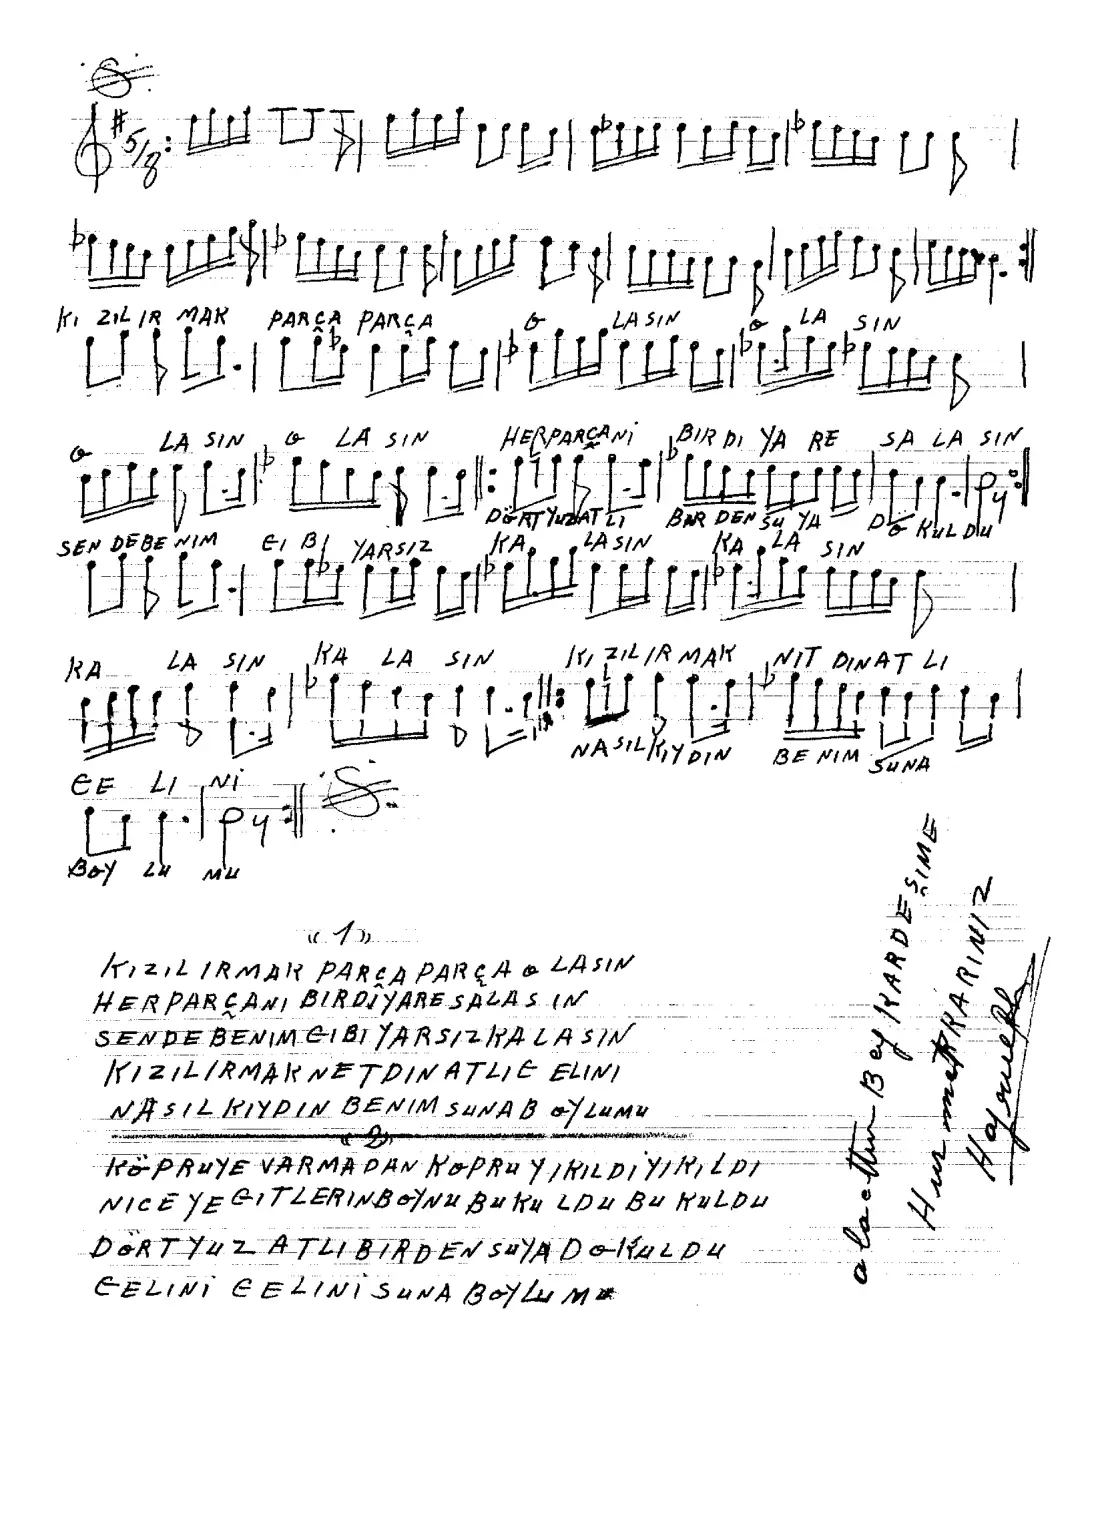 5/8
KI ZIL IR MAK PARÇA PARÇA O LASIN O LA SIN
O LA SIN O LA SIN HERPARÇANI BIR DI YA RE SA LA SIN
DÖRT YUZ ATLI BIR DEN SU YA DÖ KUL DU
SEN DEBENIM GI BI YARSIZ KA LASIN KA LA SIN
KA LA SIN KA LA SIN KI ZIL IR MAK NIT DINAT LI
NASIL KIYDIN BE NIM SUNA
GE LI NI
BOY LU MU
"1"
KIZIL IRMAK PARÇA PARÇA OLASIN
HERPARÇANI BIRDİYARE SALASIN
SENDE BENIM GIBI YARSIZ KALASIN
KIZILIRMAK NETDIN ATLI GELINI
NASIL KIYDIN BENIM SUNA BOYLUMU
"2"
KÖPRUYE VARMADAN KOPRU YIKILDI YIKILDI
NICE YEGITLERIN BOYNU BUKULDU BUKULDU
DORT YUZ ATLI BIRDEN SUYA DOKULDU
GELINİ GELINİ SUNA BOYLUMU
alaettin Bey KARDEŞIME
HurmetKRARINIZ